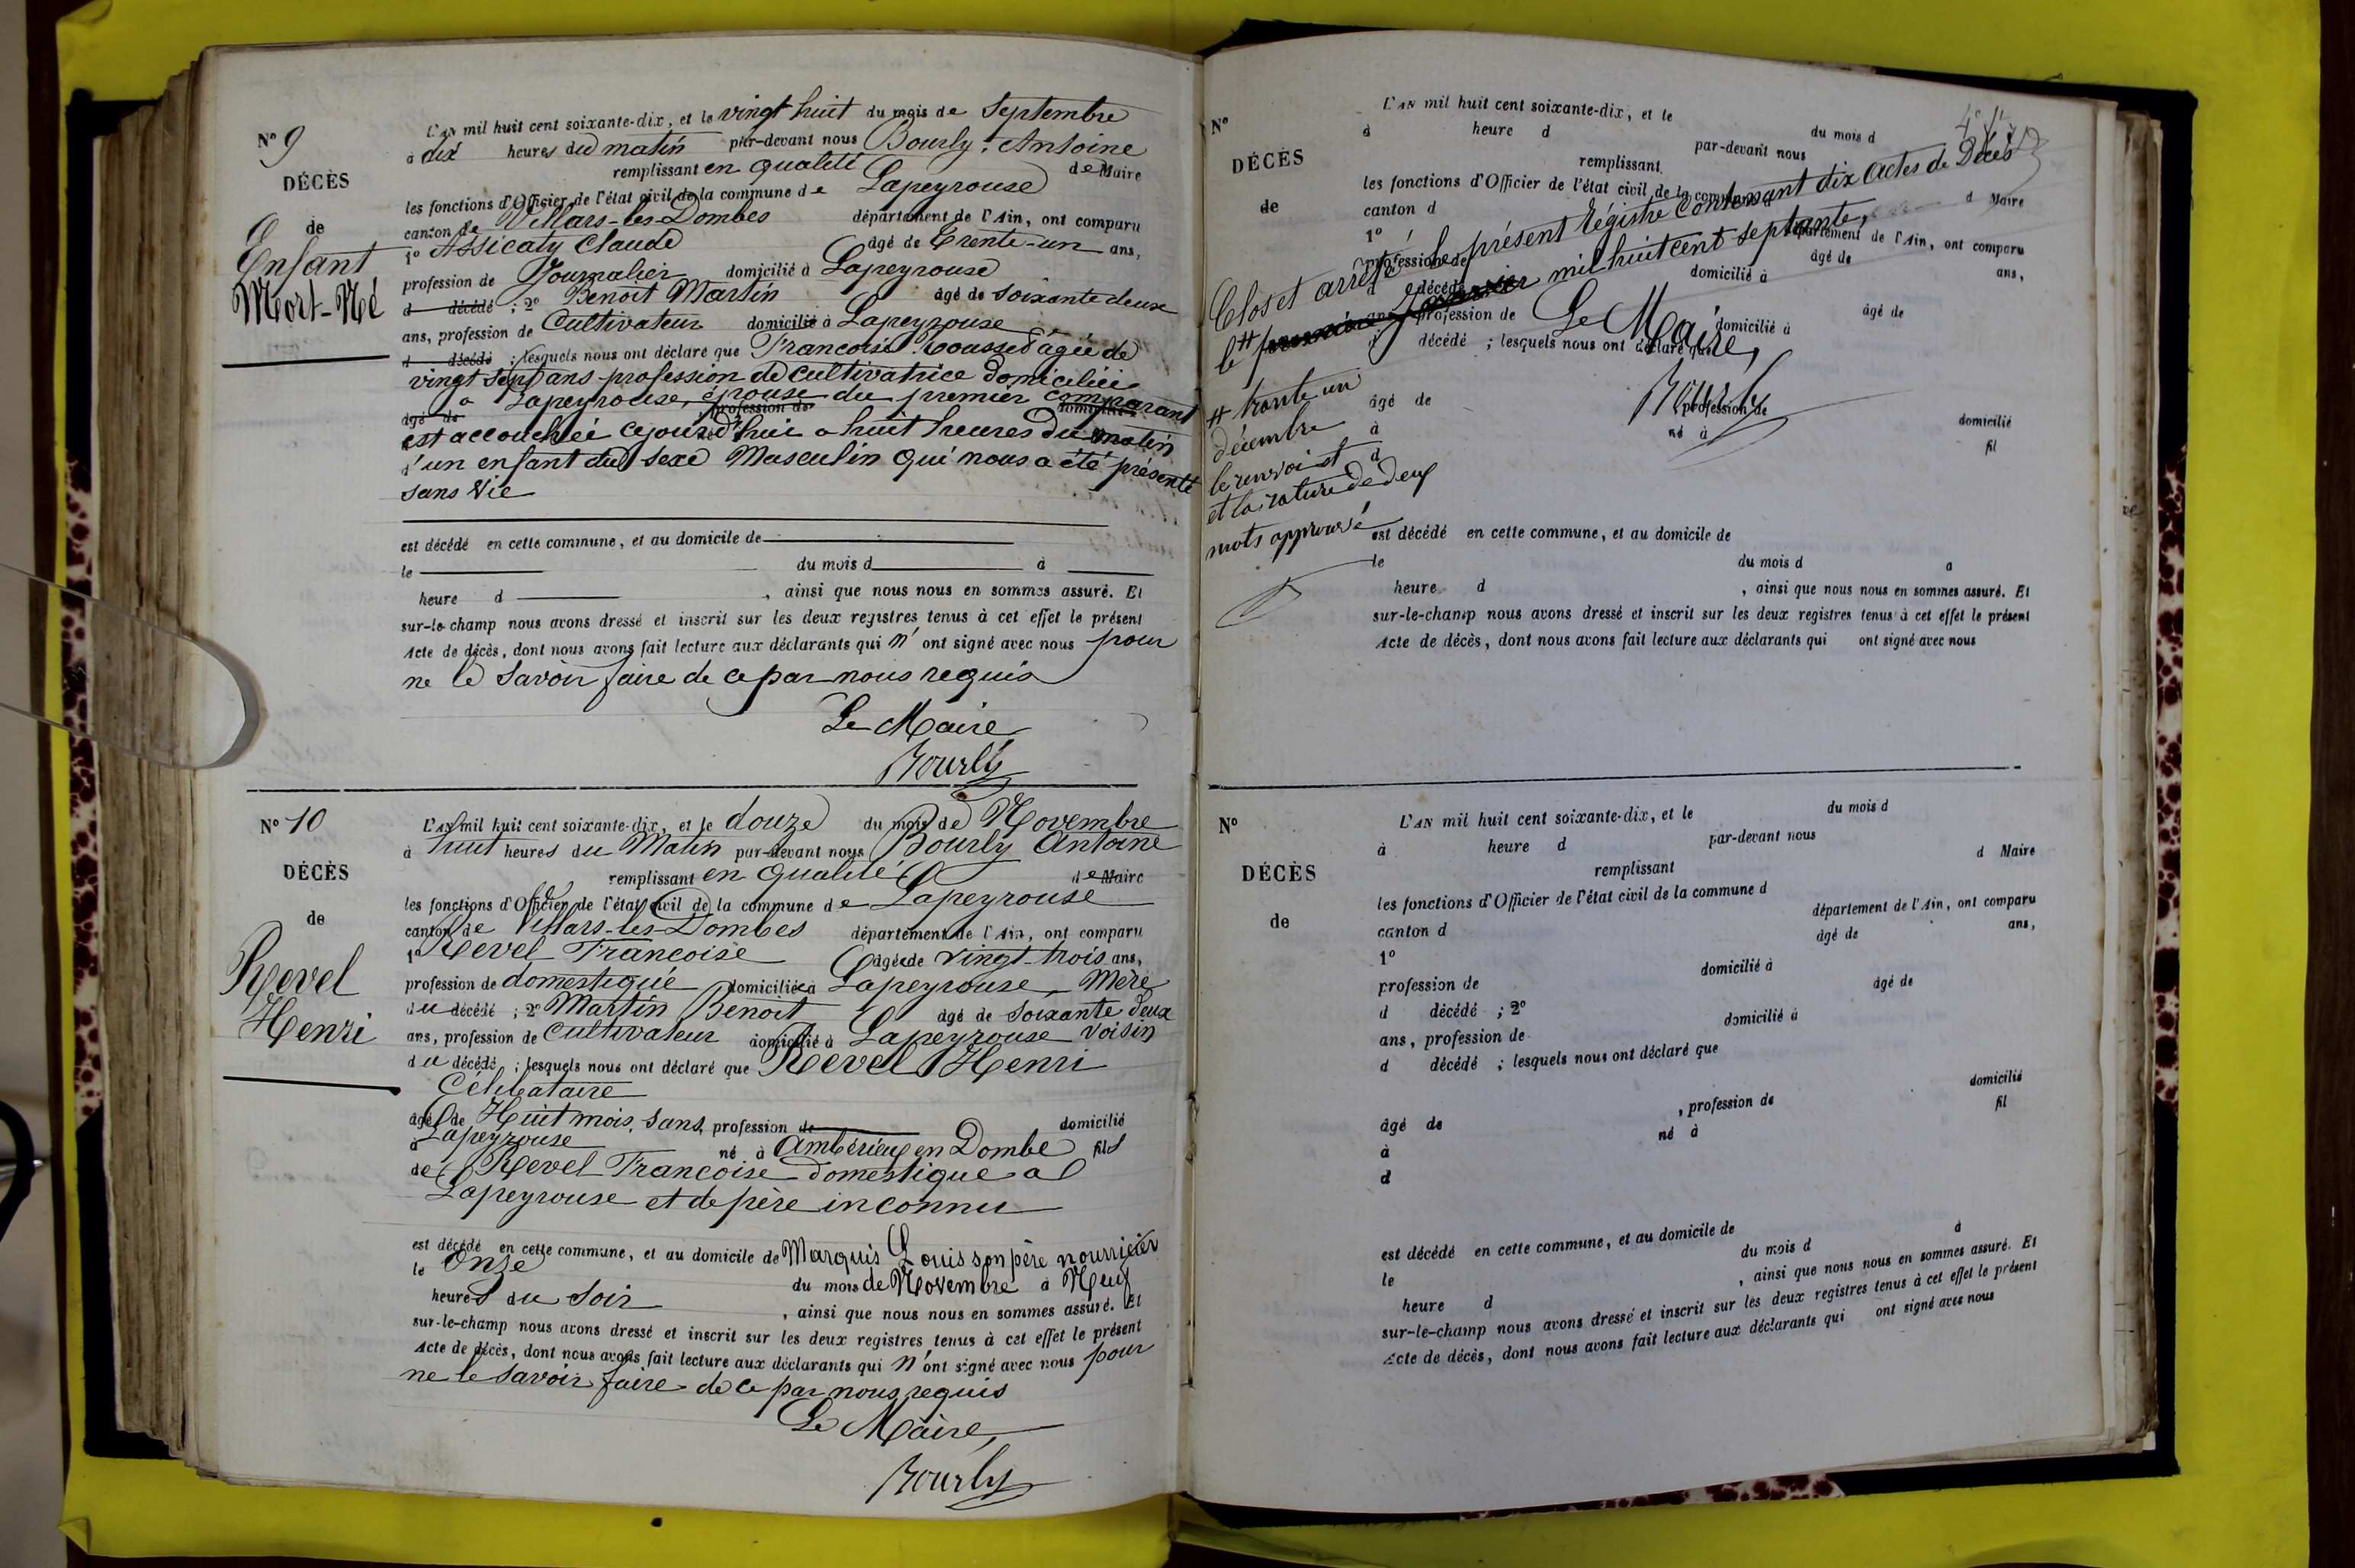 N° 9
DÉCÈS
de
Enfant
Mort-Né
L'AN mil huit cent soixante-dix, et le vingt huit du mois de Septembre
à dix heures du matin par-devant nous Bourly Antoine
remplissant en qualité de Maire
les fonctions d'Officier de l'état civil de la commune de Lapeyrouse
canton de Villars-les-Dombes département de l'Ain, ont comparu
1° Assicaty Claude âgé de Trente-un ans,
profession de Journalier domicilié à Lapeyrouse
d décédé ; 2° Benoît Martin âgé de soixante deux
ans, profession de Cultivateur domicilié à Lapeyrouse
d décédé ; lesquels nous ont déclaré que Francoise Rousset âgée de
vingt sept ans profession de cultivatrice domiciliée
à Lapeyrouse, épouse du premier comparant
âgé de profession de domicilié
est accouchée cejourd'hui à huit heures du matin
d'un enfant du sexe Masculin qui nous a été présenté
sans vie
est décédé en cette commune, et au domicile de
le du mois d à
heure d , ainsi que nous nous en sommes assuré. Et
sur-le-champ nous avons dressé et inscrit sur les deux registres tenus à cet effet le présent
Acte de décès, dont nous avons fait lecture aux déclarants qui n'ont signé avec nous pour
ne le savoir faire de ce par nous requis
Le Maire
Bourly
N° 10
DÉCÈS
de
Revel
Henri
L'AN mil huit cent soixante-dix, et le douze du mois de Novembre
à huit heures du Matin par-devant nous Bourly Antoine
remplissant en qualité de Maire
les fonctions d'Officier de l'état civil de la commune de Lapeyrouse
canton de Villars-les-Dombes département de l'Ain, ont comparu
1° Revel Francoise âgée de vingt-trois ans,
profession de domestique domiciliée à Lapeyrouse, Mère
du décédé ; 2° Martin Benoit âgé de soixante deux
ans, profession de Cultivateur domicilié à Lapeyrouse voisin
du décédé ; lesquels nous ont déclaré que Revel Henri
Célibataire
âgé de Huit mois, sans profession de domicilié
à Lapeyrouse né à Ambérieux en Dombe fils
de Revel Francoise domestique à
Lapeyrouse et de père inconnu
est décédé en cette commune, et au domicile de Marquis Louis son père nourricier
le Onze du mois de Novembre à Neuf
heures du soir , ainsi que nous nous en sommes assuré. Et
sur-le-champ nous avons dressé et inscrit sur les deux registres tenus à cet effet le présent
Acte de décès, dont nous avons fait lecture aux déclarants qui n'ont signé avec nous pour
ne le savoir faire de ce par nous requis
Le Maire,
Bourly
N°
DÉCÈS
de
L'AN mil huit cent soixante-dix, et le du mois d
à heure d par-devant nous
remplissant d Maire
les fonctions d'Officier de l'état civil de la commune d
canton d département de l'Ain, ont comparu
1° âgé de ans,
profession de domicilié à
d décédé ; 2° âgé de
ans, profession de domicilié à
d décédé ; lesquels nous ont déclaré que
Clos et arrêté le présent Régistre contenant dix actes de Décès
le # premier Janvier mil huit cent septante,
Le Maire,
Bourly
# trente un
décembre
le renvoi et
et la rature de deux
mots approuvé
âgé de profession de domicilié
à né à fil
d
est décédé en cette commune, et au domicile de
le du mois d à
heure d , ainsi que nous nous en sommes assuré. Et
sur-le-champ nous avons dressé et inscrit sur les deux registres tenus à cet effet le présent
Acte de décès, dont nous avons fait lecture aux déclarants qui ont signé avec nous
N°
DÉCÈS
de
L'AN mil huit cent soixante-dix, et le du mois d
à heure d par-devant nous
remplissant d Maire
les fonctions d'Officier de l'état civil de la commune d
canton d département de l'Ain, ont comparu
1° âgé de ans,
profession de domicilié à
d décédé ; 2° âgé de
ans, profession de domicilié à
d décédé ; lesquels nous ont déclaré que
âgé de , profession de domicilié
à né à fil
d
est décédé en cette commune, et au domicile de
le du mois d à
heure d , ainsi que nous nous en sommes assuré. Et
sur-le-champ nous avons dressé et inscrit sur les deux registres tenus à cet effet le présent
Acte de décès, dont nous avons fait lecture aux déclarants qui ont signé avec nous